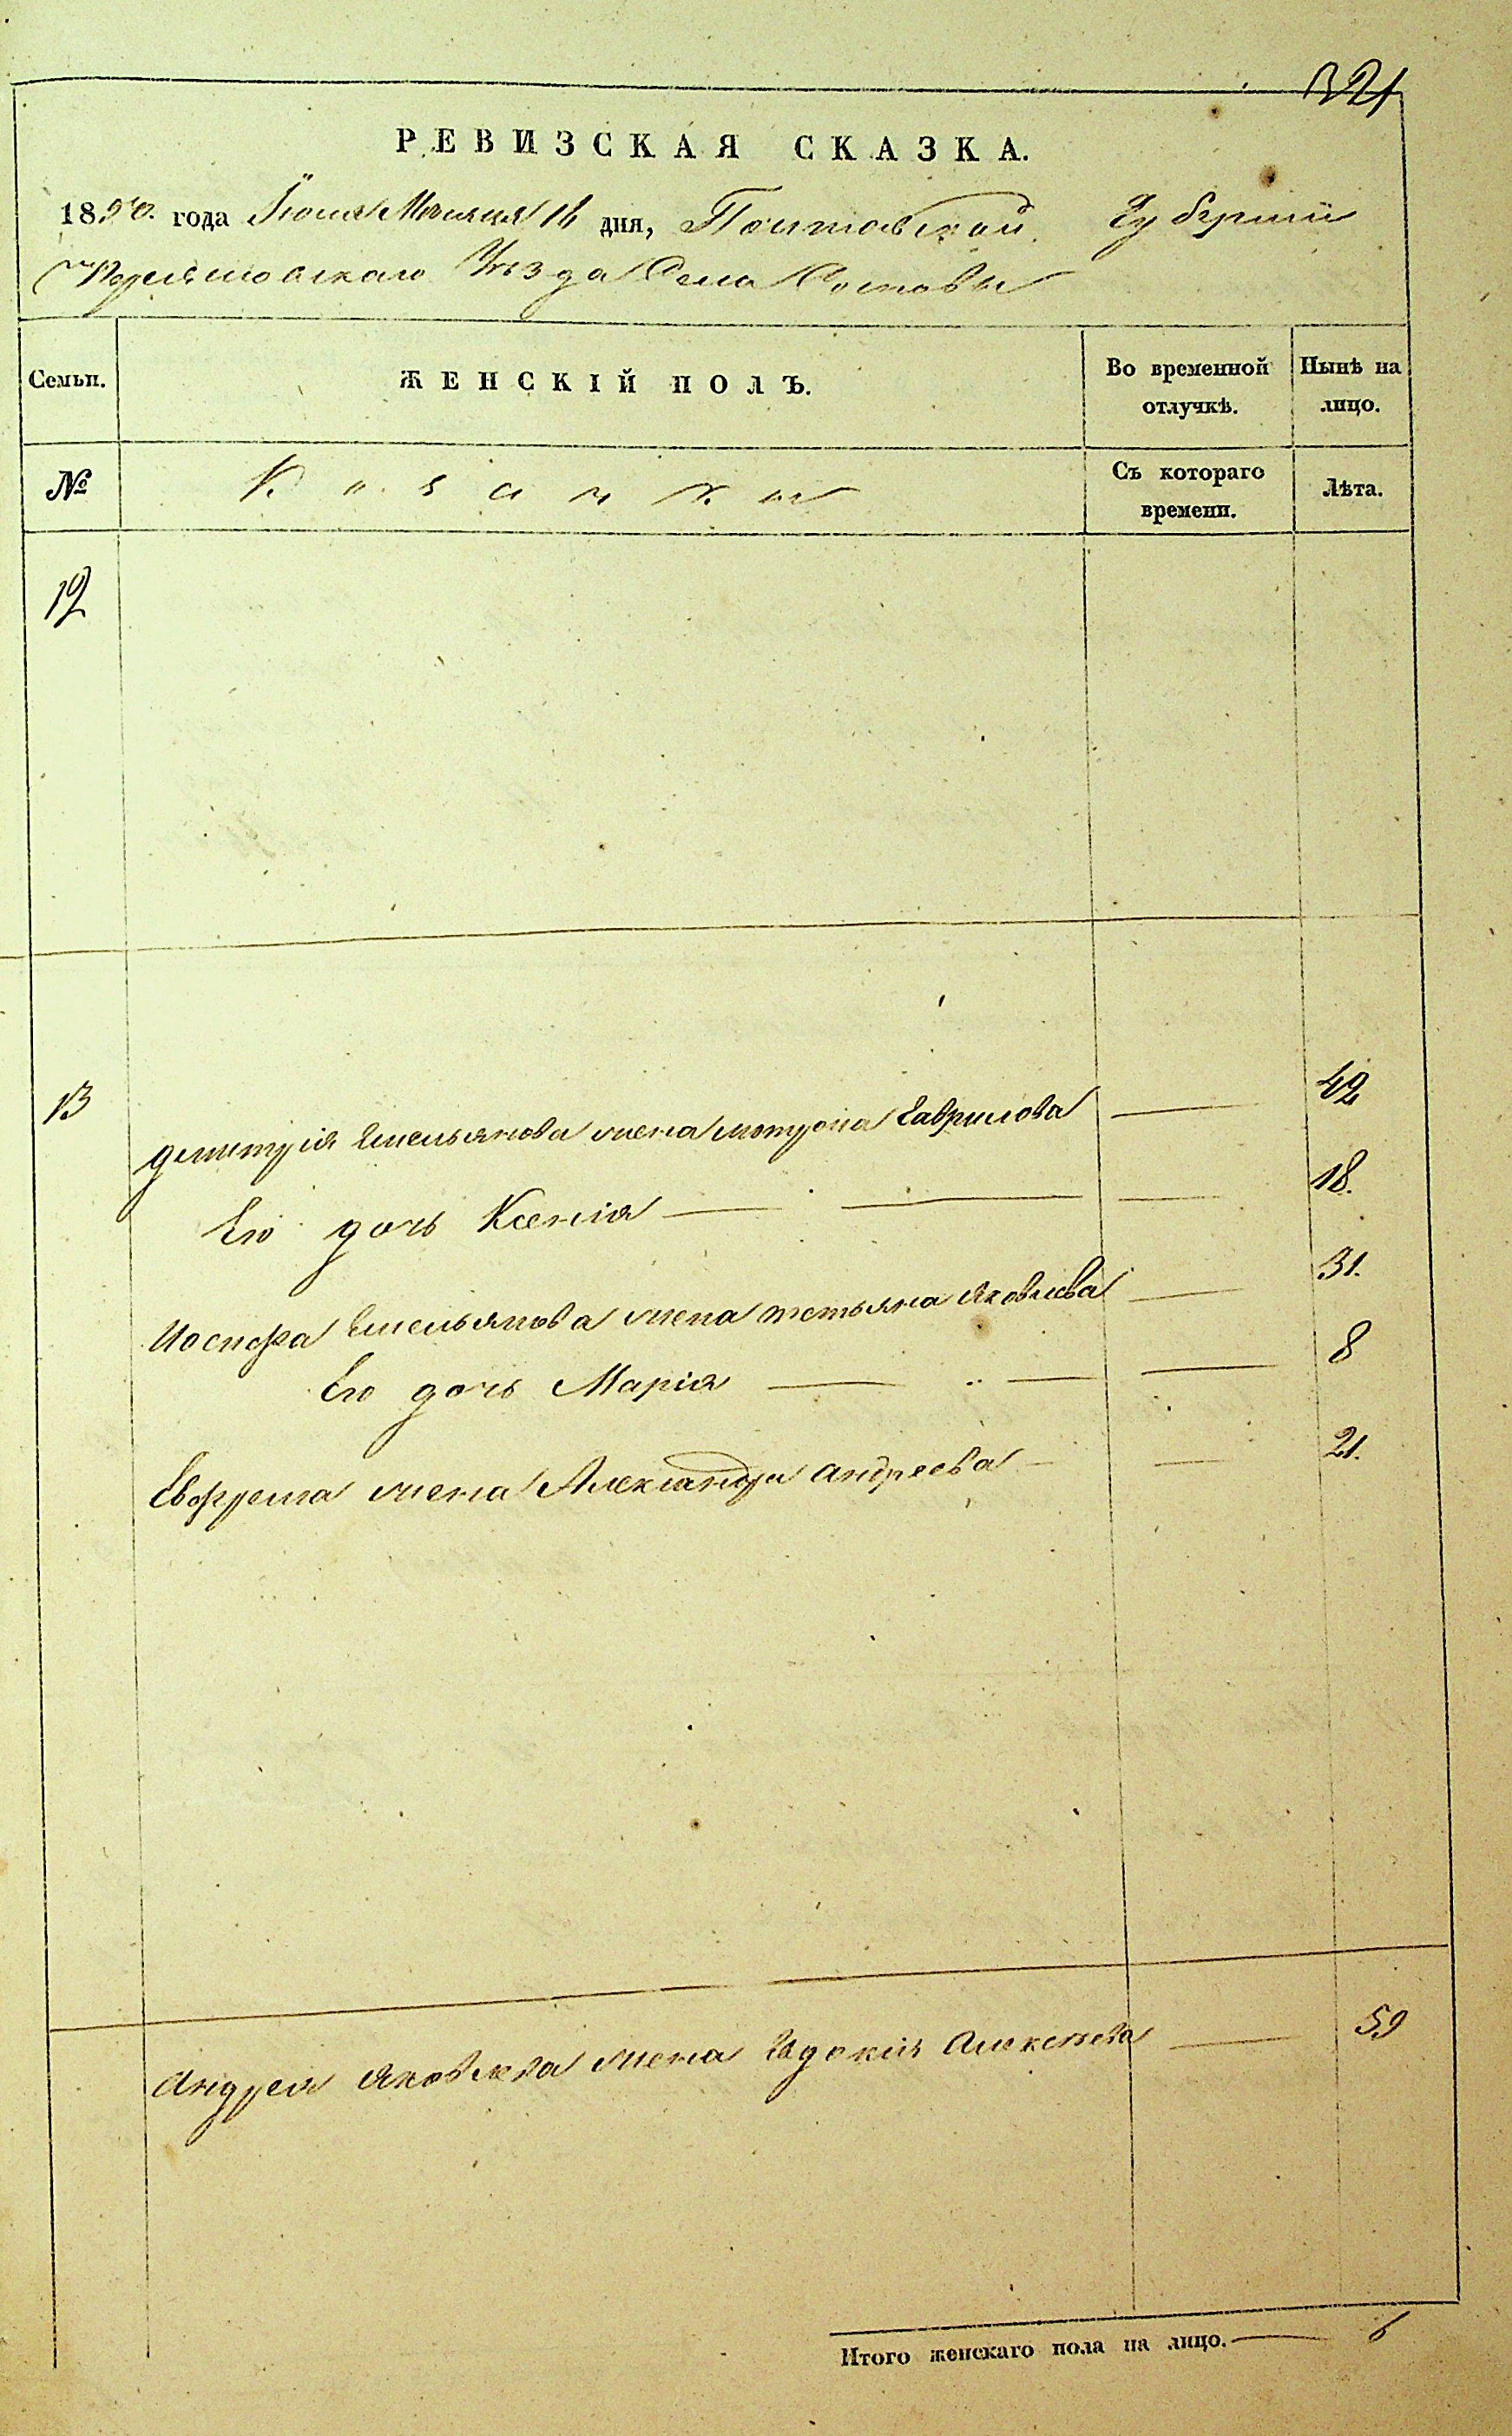 321
РЕВИЗСКАЯ СКАЗКА.
1850. года Іюня Месяца 16 дня, Полтавской Губерніи
Уѣзда Села
Семьи. ЖЕНСКІЙ ПОЛЪ. Во временной отлучкѣ. Нынѣ на лицо.
№ Козачки Съ котораго времени. Лѣта.
12
13 Димитрія Емельянова жена Мотрона Гаврилова — 42
Его дочь Ксенія — — — 18.
Иосифа Емельянова жена Татьяна Яковлева — 31.
Его дочь Марія — — — 8
Евфрема жена Александра Андреева — — 21.
Андрея Яковлева жена Евдокія Алексѣева — 59
Итого женскаго пола на лицо. — 6